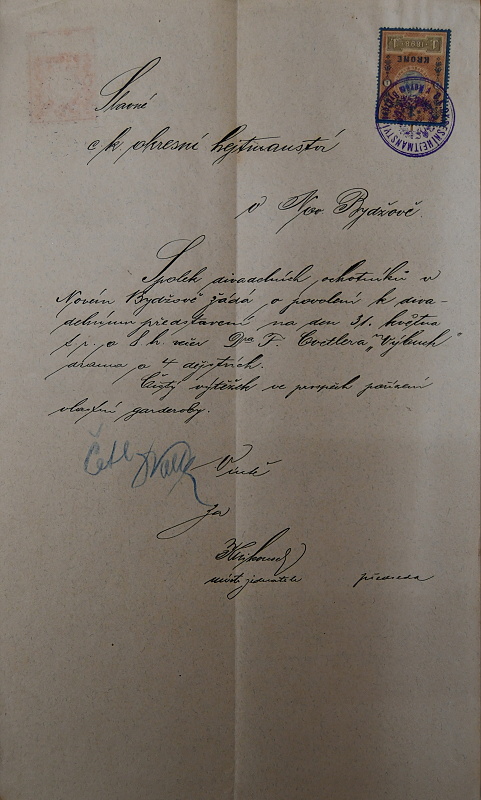 Slavné
c. k. okresní hejtmanství
v Nov. Bydžově.
Spolek divadelních ochotníků v
Novém Bydžově žádá o povolení k diva-
delnímu představení na den 31. května
t. r. o 8 h. večer Dra F. Cvetlera „Výbuch"
drama o 4 dějstvích.
Čistý výtěžek ve prospěch pořízení
vlastní garderoby.
Četl
V úctě
za
místojednatele předseda
KRONE